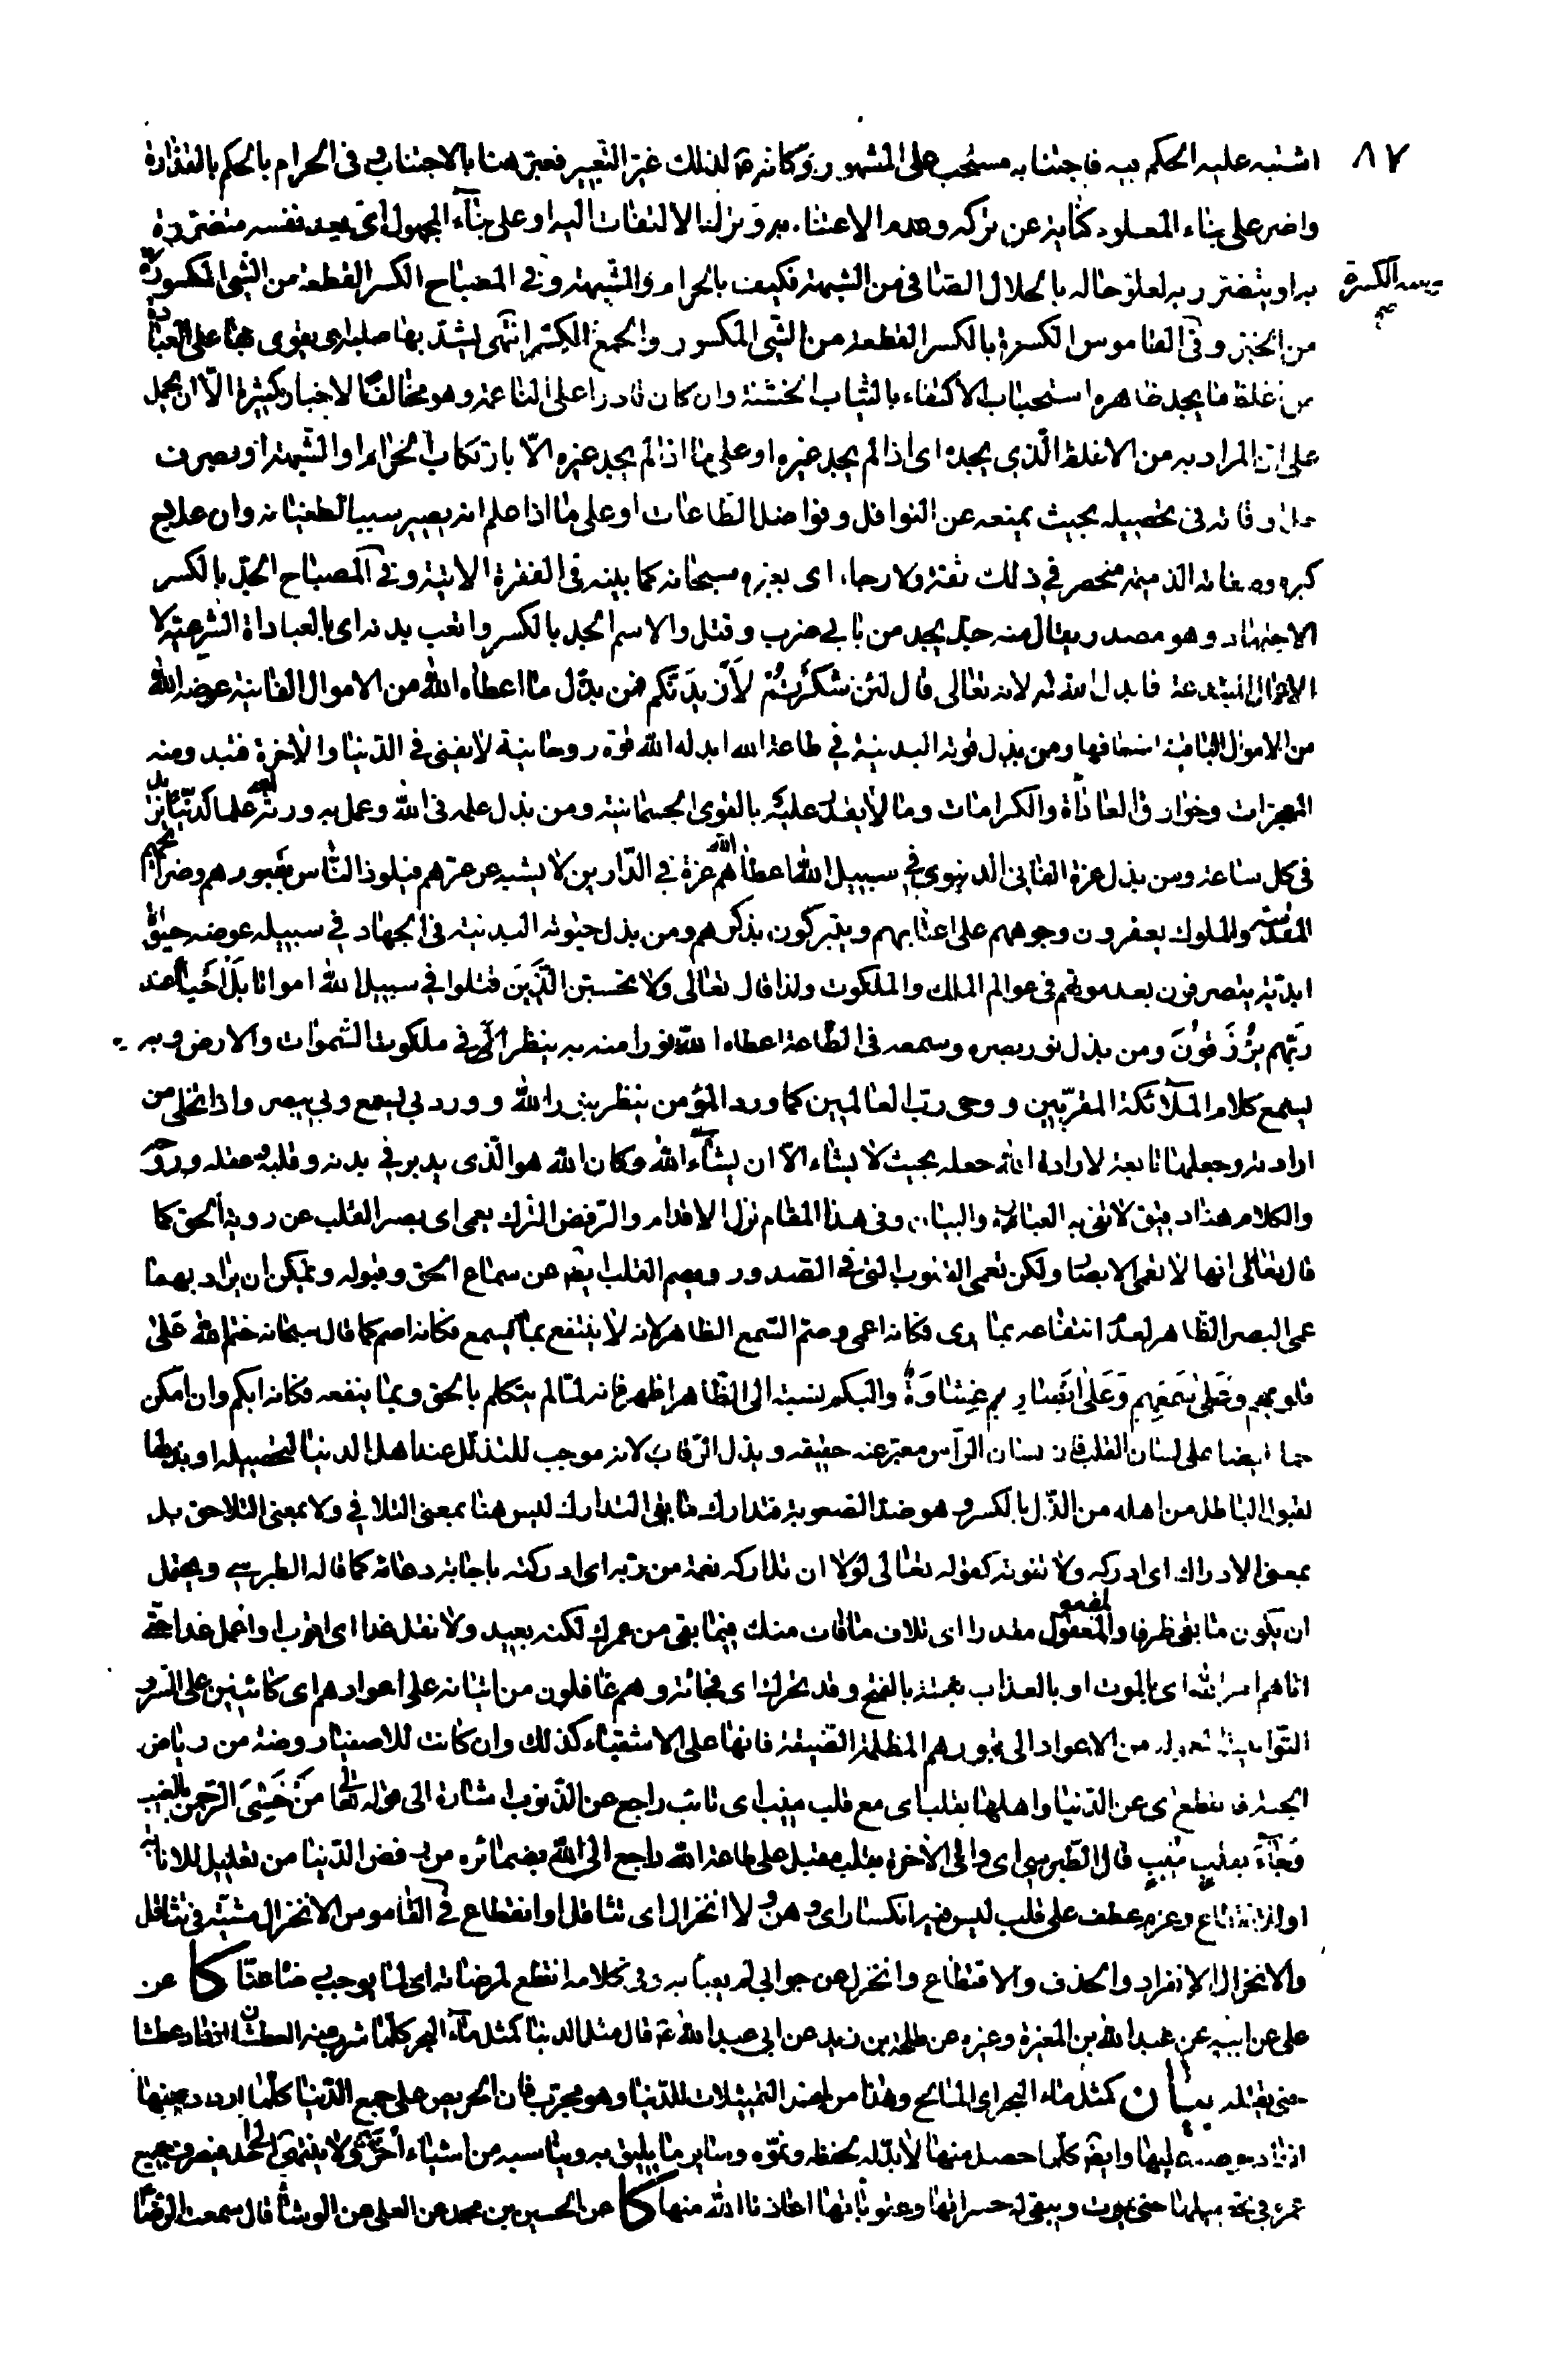 ٨٧
اشتبه عليه الحكم فيه فاجتنابه مستحب على المشهور وكانه ع لذلك غير التعبير فعبر هنا بالاجتناب وفى الحرام بالحكم بالقذارة
واضر على بناء المعلوم كناية عن تركه وعدم الاعتناء به وترك الالتفات اليه او على بناء المجهول اى يعد نفسه متضررة
به او يتضرر به لعلو حاله بالحلال الصافى من الشبهة فكيف بالحرام والشبهة وفى المصباح الكسرة القطعة من الشئ المكسور ومنه الكسرة
من الخبز وفى القاموس الكسرة بالكسر القطعة من الشئ المكسور والجمع الكسر انتهى يشد بها صلبه اى يقوى بها على العبادة
من اغلظ ما يجد ظاهره استحباب الاكتفاء بالثياب الخشنة وان كان قادرا على الناعمة وهو مخالف لاخبار كثيرة الّا ان يحمل
على ان المراد به من الاغلظ الّذى يجده اى اذا لم يجد غيره او على ما اذا لم يجد غيره الّا بارتكاب الحرام او الشبهة او بصرف
جلّ اوقاته فى تحصيله بحيث يمنعه عن النوافل وفواضل الطاعات او على ما اذا علم انه يصير سببا لطغيانه وان علاج
كبره وصفاته الذميمة منحصر فى ذلك ثقة ولا رجاء اى بغيره سبحانه كما بينه فى الفقرة الاتية وفى المصباح الجدّ بالكسر
الاجتهاد وهو مصدر يقال منه جدّ يجد من بابى ضرب وقتل والاسم الجد بالكسر واتعب بدنه اى بالعبادات الشرعية لا
الاعمال المبتدعة فابدل الله له لانه تعالى قال لئن شكرتم لازيدنكم فمن بذل ما اعطاه الله من الاموال الفانية عوضه الله
من الاموال الباقية اضعافها ومن بذل قوته البدنية فى طاعة الله ابدله الله قوة روحانية لا يفنى فى الدنيا والاخرة فتبدو منه
المعجزات وخوارق العادات والكرامات وما لا يقدر عليه بالقوى الجسمانية ومن بذل علمه فى الله وعمل به ورثه الله علما لدنّيا يزيد
فى كل ساعة ومن بذل عزه الفانى الدنيوى فى سبيل الله اعطاهم الله عزة فى الدارين لا يشبه عن عزهم فيلوذ الناس بقبورهم وضرائحهم
المقدسة والملوك يعفرون وجوههم على اعتابهم ويتبركون بذكرهم ومن بذل حيوته البدنية فى الجهاد فى سبيله عوضه حيوة
ابدية يتصرفون بعد موتهم فى عوالم الملك والملكوت ولذا قال تعالى ولا تحسبن الذين قتلوا فى سبيل الله امواتا بل احياء عند
ربّهم يرزقون ومن بذل نور بصره وسمعه فى الطاعة اعطاه الله نورا منه به ينظر الى فى ملكوت السموات والارض وبه
يسمع كلام الملائكة المقربين ووحى رب العالمين كما ورد المؤمن ينظر بنور الله وورد بى يسمع وبى يبصر واذا تخلى من
ارادته وجعلها تابعة لارادة الله جعله بحيث لا يشاء الّا ان يشاء الله وكان الله هو الّذى يدبر فى بدنه وقلبه وعقله وروحه
والكلام هنا دقيق لا تفى به العبارة والبيان وفى هذا المقام تزل الاقدام والرفض الترك يعمى اى بصر القلب عن روية الحق كما
قال تعالى انها لا تعمى الابصار ولكن تعمى القلوب التى فى الصدور ويصم القلب ايضا عن سماع الحق وقبوله ويمكن ان يراد بهما
عمى البصر الظاهر لعدم انتفاعه بما يرى فكانه اعمى وصمّ السمع الظاهر لانه لا ينتفع بما يسمع فكانه اصم كما قال سبحانه ختم الله على
قلوبهم وعلى سمعهم وعلى ابصارهم غشاوة والبكم نسبته الى الظاهر اظهر فانه لما لم يتكلم بالحق وبما ينفعه فكانه ابكم وان امكن
حملها ايضا على لسان القلب فان لسان الرأس معبر عنه حقيقة ويذل الرقاب لانه موجب للتذلل عند اهل الدنيا لتحصيله او يذلها
لقبول الباطل من اهله من الذل بالكسر وهو ضد الصعوبة فتدارك ما بقى التدارك ليس هنا بمعنى التلافى ولا بمعنى التلاحق بل
بمعنى الادراك اى ادركه ولا تفوته كقوله تعالى لولا ان تداركه نعمة من ربه اى ادركته باجابة دعائه كما قاله الطبرسى ويحتمل
ان يكون ما بقى ظرفا والمفعول مقدرا اى تلاف ما فات منك فيما بقى من عمرك لكنه بعيد ولا تقل غدا اى اتوب او اعمل غدا حتى
اتاهم امر الله اى بالموت او بالعذاب بغتة بالفتح وقد تحرك اى فجاءة وهم غافلون من اتيانه على اعوادهم اى كائنين على السرر
من الاعواد الى قبورهم المظلمة الضيقة فانها على الاشقياء كذلك وان كانت للاصفياء روضة من رياض
الجنة فانقطع اى عن الدنيا واهلها بقلب اى مع قلب منيب اى تائب راجع عن الذنوب اشارة الى قوله تعالى من خشى الرحمن بالغيب
وجاء بقلب منيب قال الطبرسى اى وافى الاخرة بقلب مقبل على طاعة الله راجع الى الله بضمائره من رفض الدنيا من تعليل للانابة
او الانقطاع وعزم عطف على قلب ليس فيه انكسار اى وهن ولا انخزال اى تثاقل او انقطاع فى القاموس الانخزال مشية فى تثاقل
والانخزال الانفراد والحذف والاقتطاع وانخزل عن جوابى لم يعبأ به وفى كلامه انقطع لمرضاته اى لما يوجب رضاه عنا كا عن
على عن ابيه عن عبد الله بن المغيرة وغيره عن طلحة بن زيد عن ابى عبد الله ع قال مثل الدنيا كمثل ماء البحر كلما شرب منه العطشان ازداد عطشا
حتى يقتله بيان كمثل ماء البحر اى المالح وهذا من احسن التمثيلات للدنيا وهو مجرب فان الحريص على جمع الدنيا كلما ازداد منها
ازداد حرصه عليها وايضا كلما حصل منها لا بد له لحفظه ونموه وساير ما يليق به ويناسبه من اشياء اخرى ولا ينتهى الى حد فيصرف جميع
عمره فى تحصيلها حتى يموت ويبقى له حسراتها وعقوباتها اعاذنا الله منها كا عن الحسين بن محمد عن المعلى عن الوشاء قال سمعت الرضا